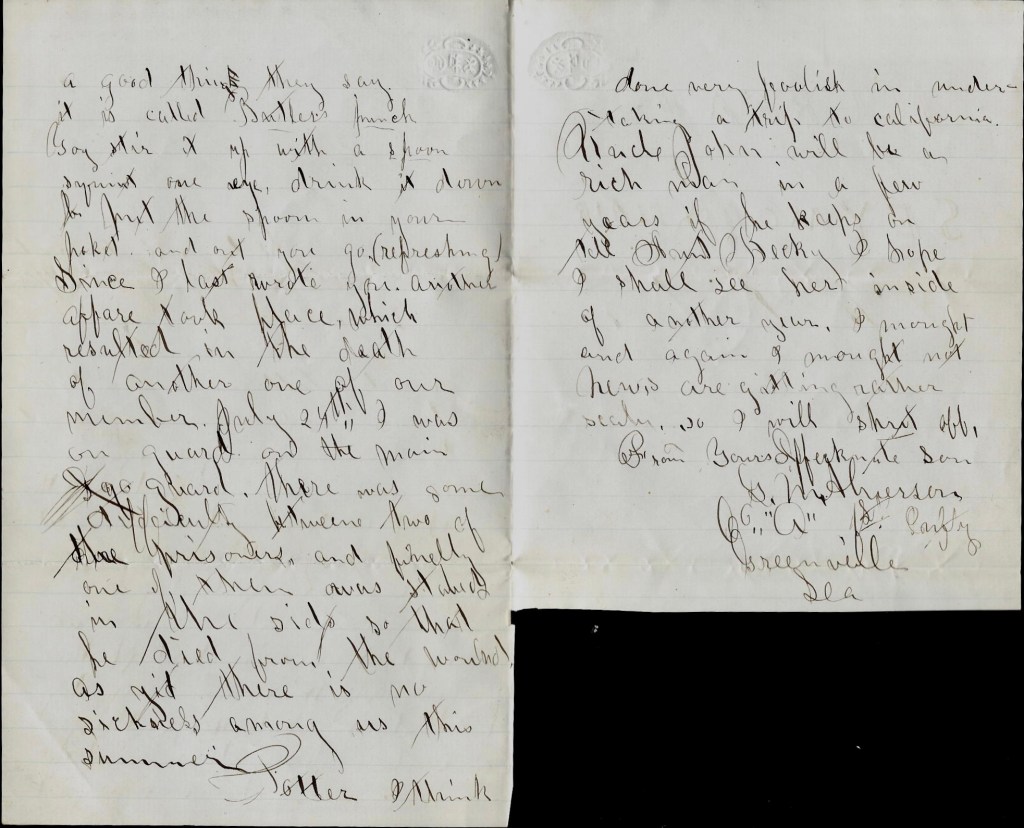 a good thing they say.
it is called Butler's punch
You stir it up with a spoon
squint one eye, drink it down
& put the spoon in your
poket. and out you go. (refreshing)
Since I last wrote you. another
affare took place, which
resulted in the death
of another one of our
number. July 24th" I was
on guard on the main
guard. there was some
difficienty betweene two of
the prisoners. and finelly
one of them was stabed
in the side so that
he died from the wound.
as yit there is no
sickness among us this
summer
Potter I think
done very foolish in under-
taking a trip to california.
Uncle John, will be a
rich man in a few
years if he keeps on
tell Aunt Becky I hope
I shall see her inside
of another year. I mought
and again I mought not
News are gitting rather
scaly, so I will shut off,
From Yours Son
D. M. Anderson
Co "A" 1st
Greenville
La